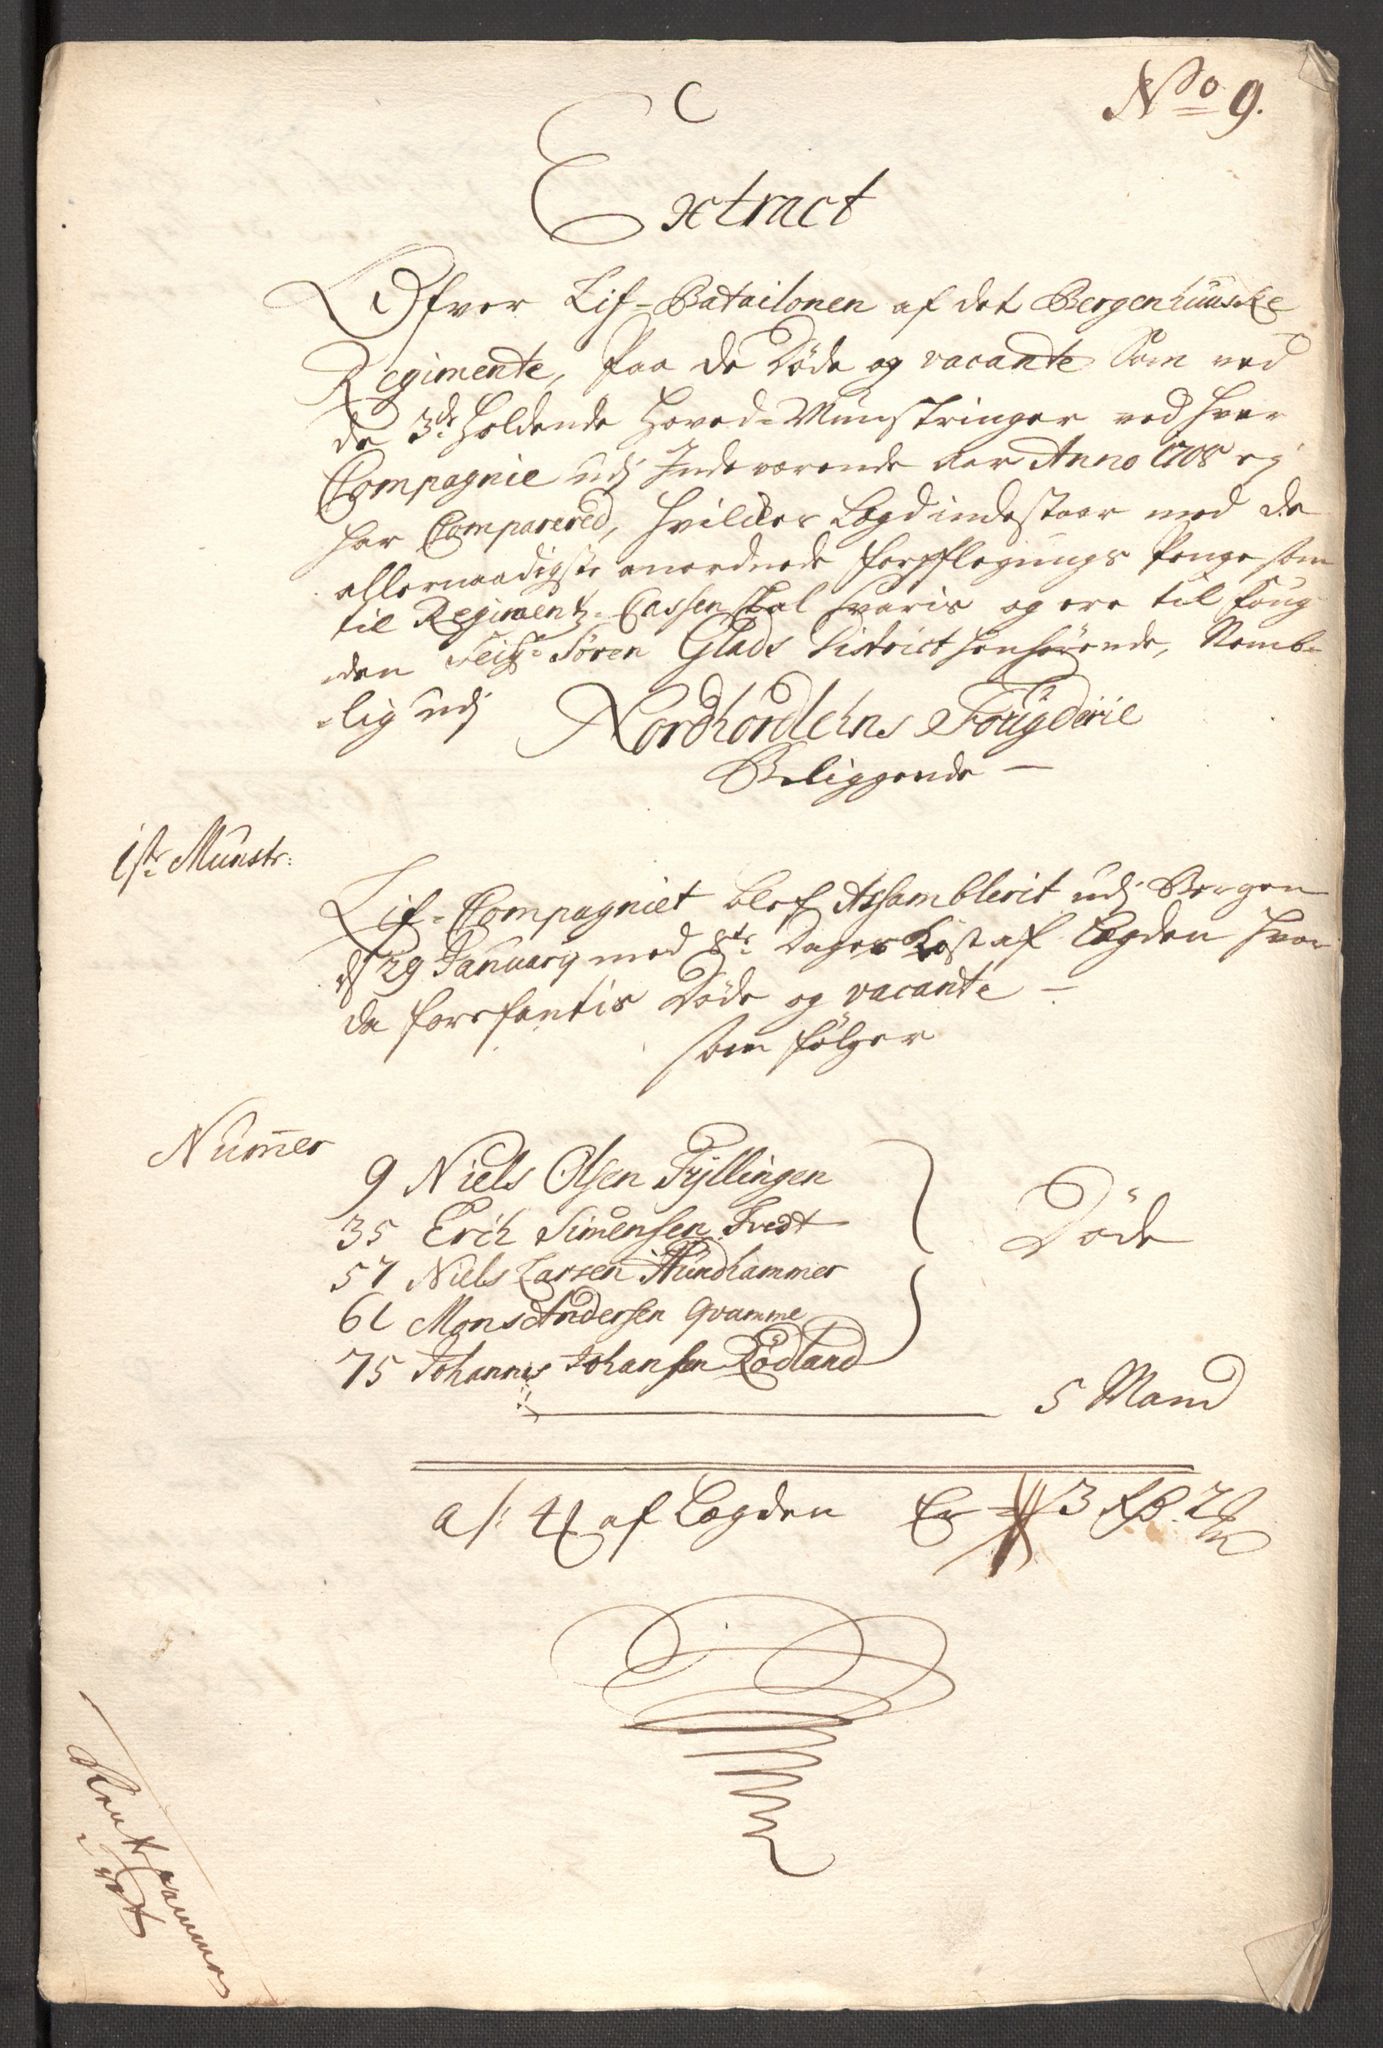 C
No 9.
Extract
Ofver Lif-Batailonen af det Bergenhuuske
Regimente, Paa de Döde og vacante Som ved
de 3de Holdende Hoved-Munstringer ved hver
Compagnie udj Indeværende Aar Anno 1708 ej
har Comparered, hvilkes Lægd indestaar med de
allernaadigste anordnede forpflegungs Penge som
til Regimentz-Cassen skal svaris og ere til foug
den Seigr Sören Glads District henhörende, Nemb-
lig udj
Nordhordlehns Fougderie
Beliggende —
1ste Munstr:
Lif-Compagniet blef Assamblerit udj Bergen
d 29 January med 8te Dages Kost af Lægden hvor
da forefantis Döde og vacante —
som fölger
Nummer
9 Niels Olsen Fyllingen
35 Erich Simensen Tvedt
57 Niels Larsen Hundhammer
61 Mons Andersen Qvamme
75 Johannes Johansen Rödland
Döde
5 Mand
a /: 4 af Lægden Er 3 Rd. 2
Rent Cammer